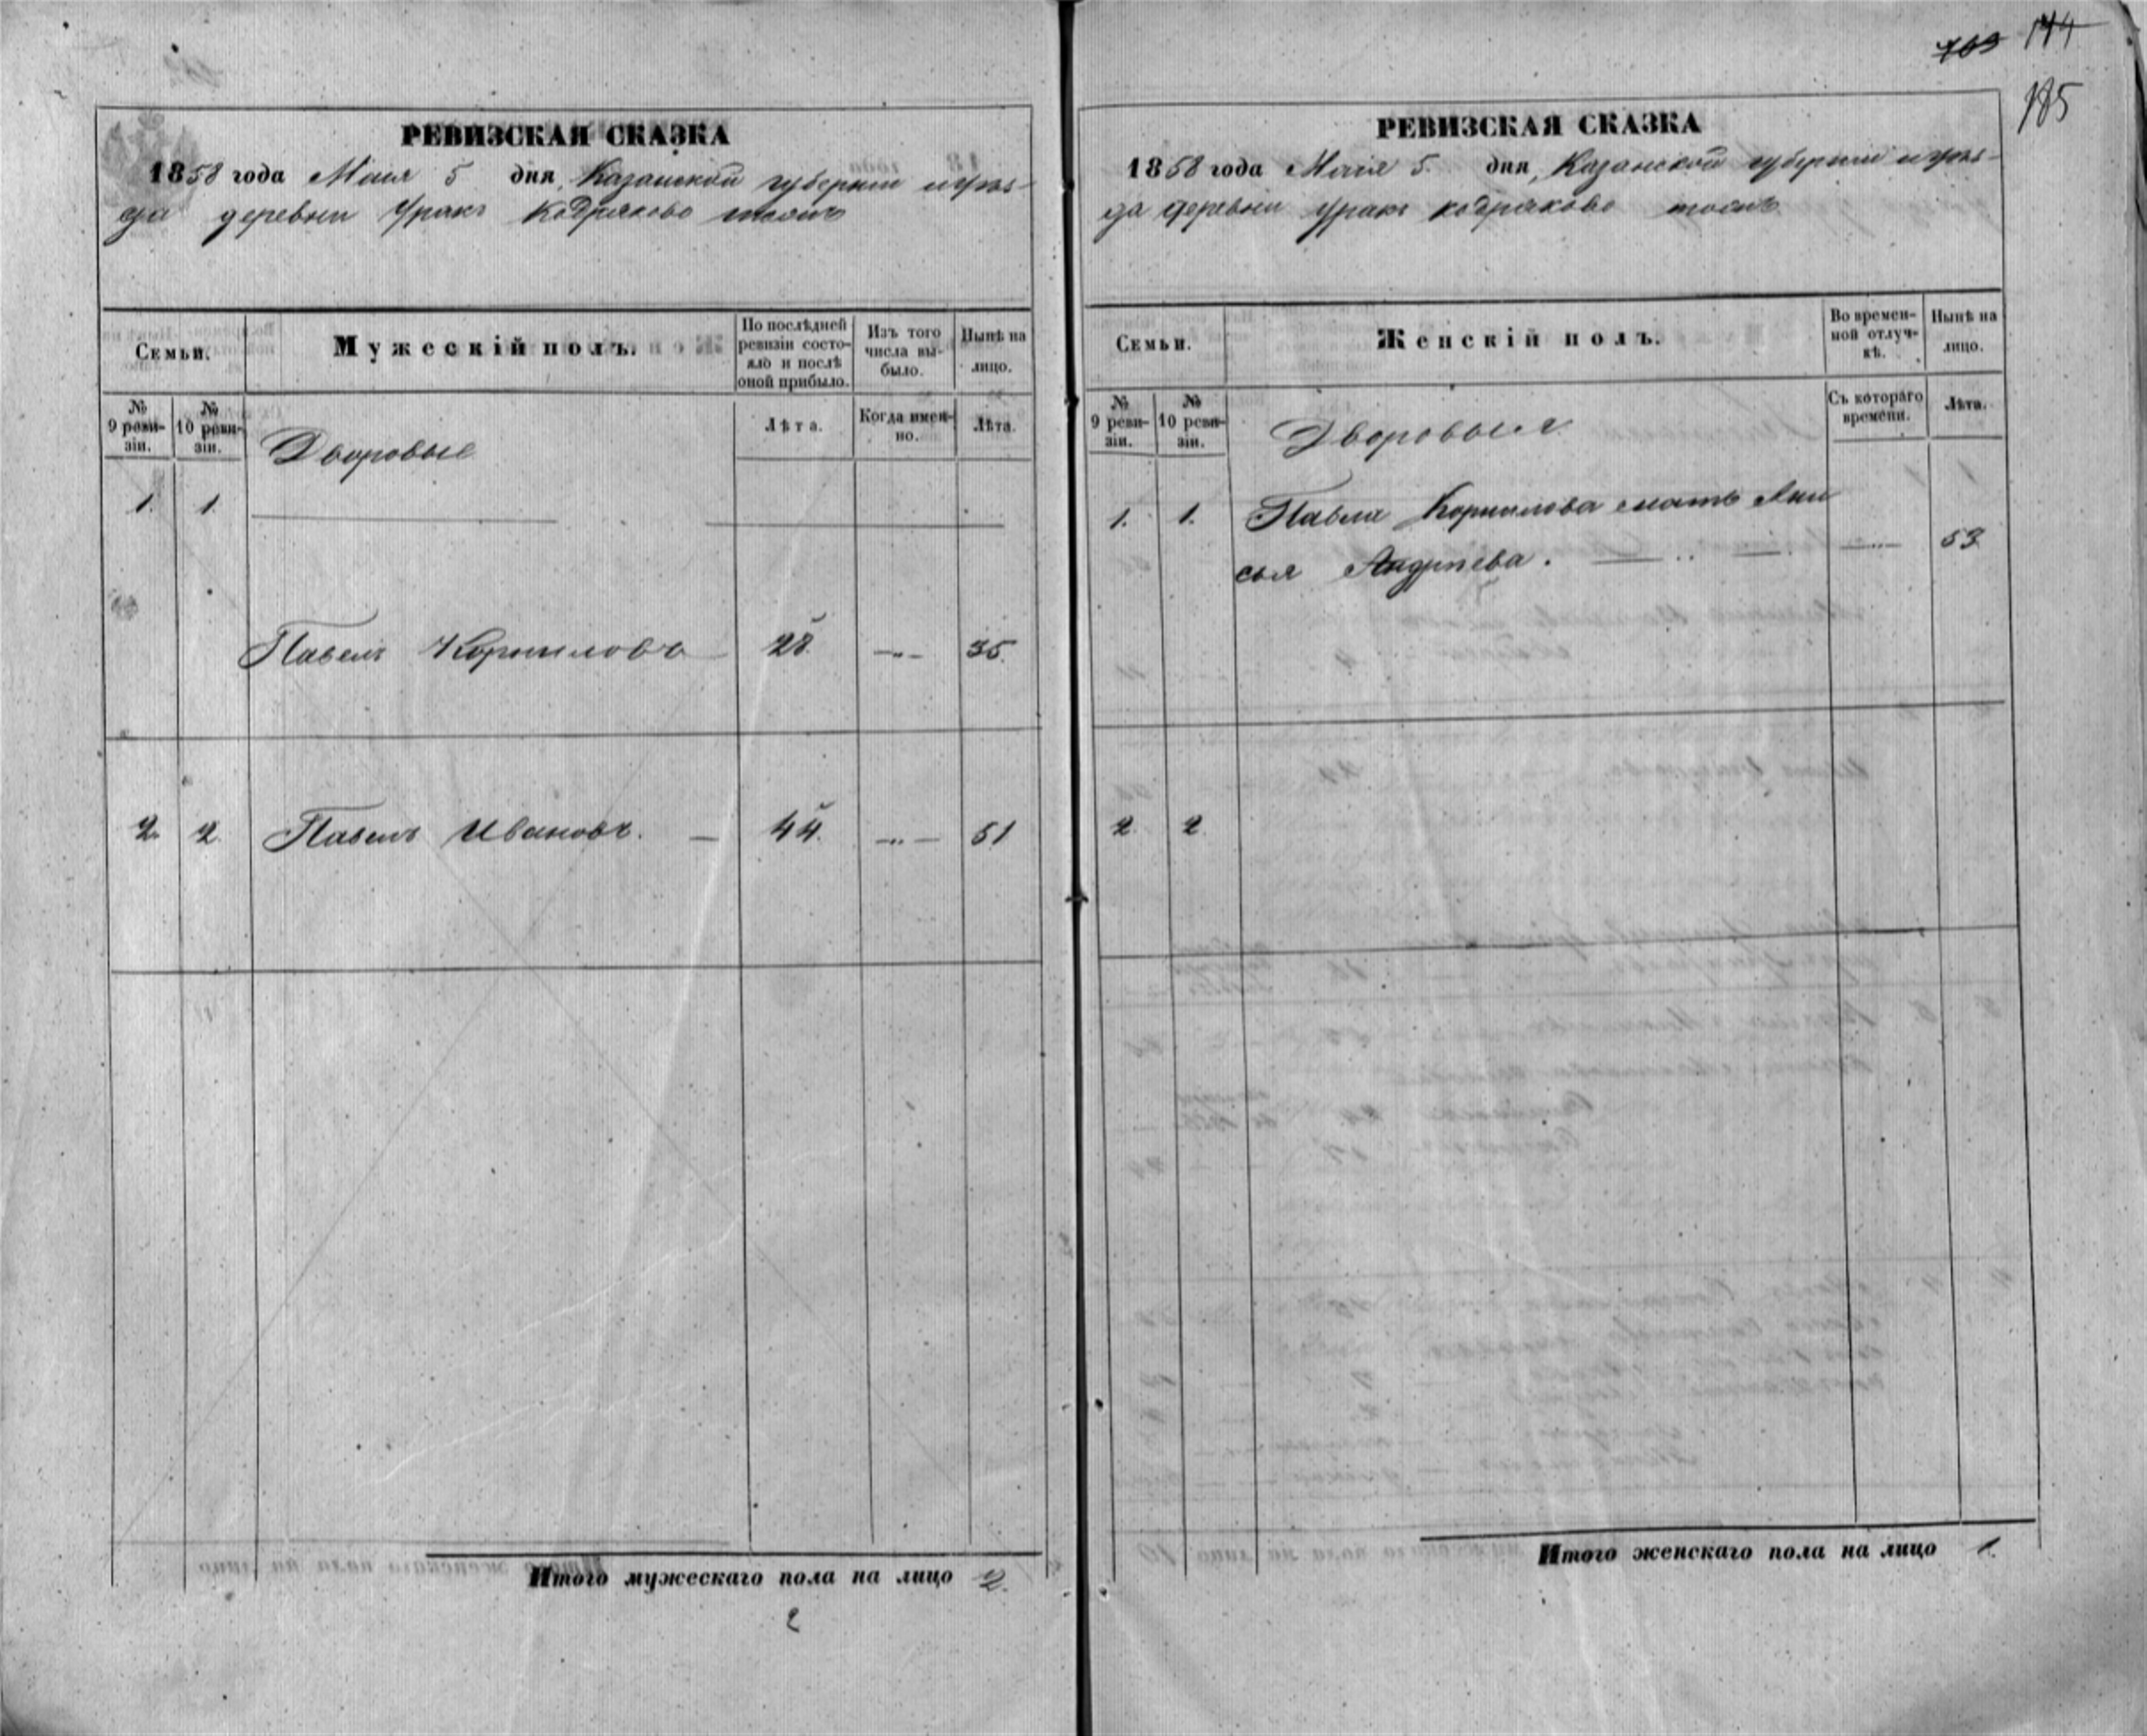 703 144
185
РЕВИЗСКАЯ СКАЗКА
1858 года Маия 5 дня, Казанской губернии и уѣз-
да деревни Уракъ Кодряково тожъ
Семьи.
Мужескій полъ.
По послѣдней ревизіи состо-
яло и послѣ оной прибыло.
Изъ того числа вы-
было.
Нынѣ на лицо.
№ 9 реви-
зіи.
№ 10 реви-
зіи.
Дворовые
Лѣта.
Когда имен-
но.
Лѣта.
1. 1.
Павелъ Корниловъ 28. 35.
2. 2. Павелъ Ивановъ. 44. 51
Итого мужескаго пола на лицо 2.
2
РЕВИЗСКАЯ СКАЗКА
1858 года Маия 5. дня, Казанской губерніи и уѣз-
да деревни Уракъ Кодряково тожъ
Семьи.
Женскій полъ.
Во времен-
ной отлуч-
кѣ.
Нынѣ на лицо.
№ 9 реви-
зіи.
№ 10 реви-
зіи.
Дворовыя
Съ котораго времени.
Лѣта.
1. 1. Павла Корнилова мать Ани
сья Андреева. 53
2. 2
Итого женскаго пола на лицо 1.